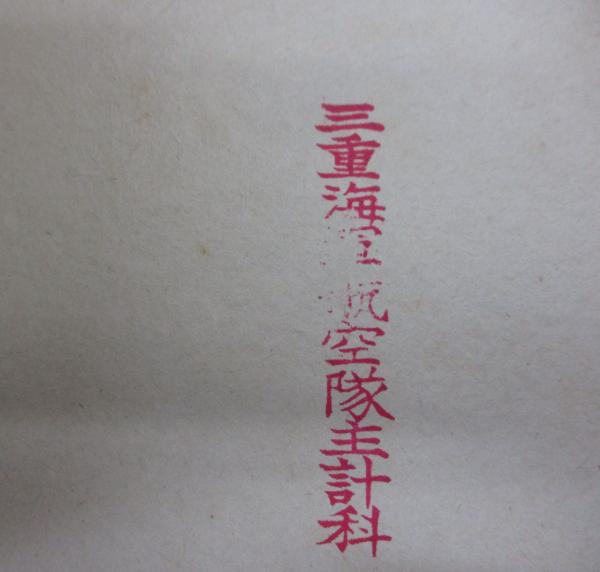 三重海軍航空隊主計科